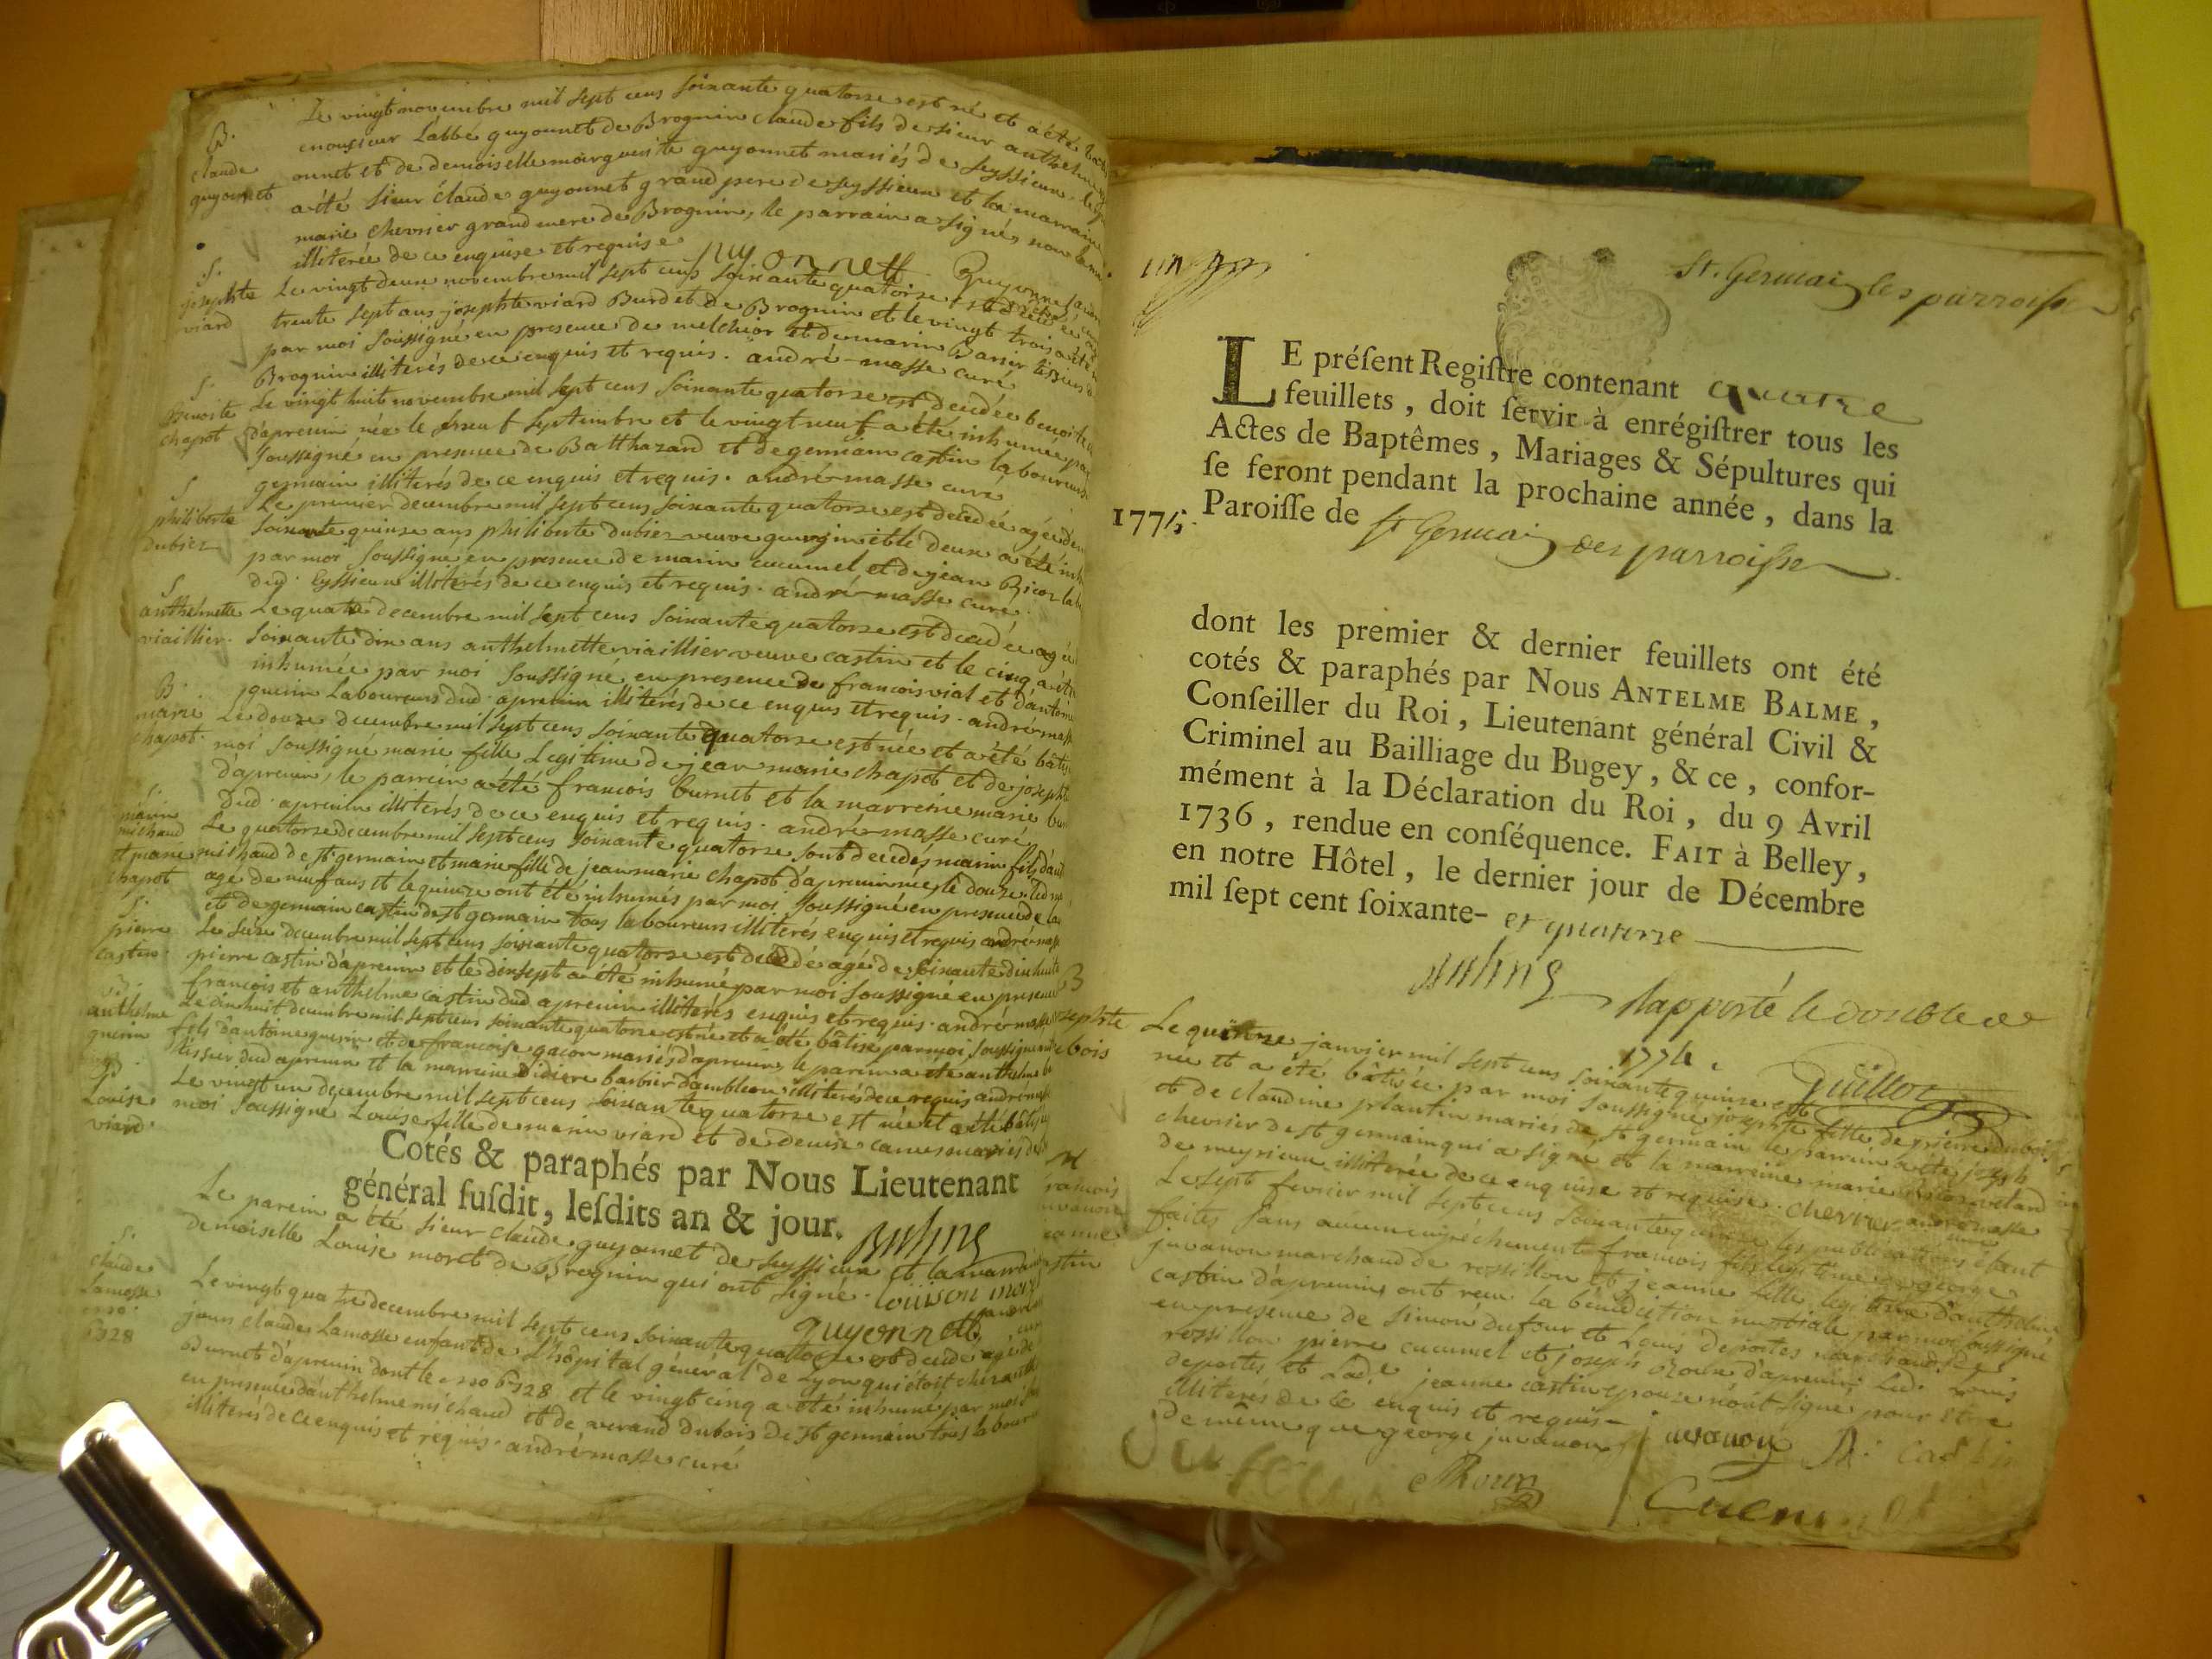 B.
claude
guyonnet
Le vingt novembre mil sept cens soixante quatorze est né et a été
monsieur Labbé guyonnet de Brognin claude fils de sieur anthelme
onnet et de demoiselle marguerite guyonnet mariés de seyssieux
a été sieur claude guyonnet grand pere de seyssieux et la marraine
marie chevrier grand mere de Brognin, le parrain a signé, non la
illiterée de ce enquise et requise
guyonnett
S.
josephte
viard
Le vingt deux novembre mil sept cens soixante quatorze est decedée
trente sept ans josephte viard Burdet de Brognin et le vingt trois a été
par moi soussigné en presence de melchior et de marin Barsier tissiers
Brognin illiterés de ce enquis et requis. andré-masse curé
S.
Benoite
chapot
Le vingt huit novembre mil sept cens soixante quatorze est decedée benoite
d'apremin née le septembre et le vingt neuf a été inhumée par
soussigné en presence de Balthazard et de germain castin laboureurs
germain illiterés de ce enquis et requis. andré-masse curé
S
philiberte
dubiez
Le premier decembre mil sept cens soixante quatorze est decedée agée de
soixante quinze ans philiberte dubiez veuve et le deux a été inh
par moi soussigné en presence de marin cucumel et de jean
dud. Eyssieux illiterés de ce enquis et requis. andré-masse curé.
S
anthelmette
viaillier.
Le quatre decembre mil sept cens soixante quatorze est decedée agée
soixante dix ans anthelmette viaillier veuve castin et le cinq a été
inhumée par moi soussigné en presence de francois vial et d'antoine
guerin Laboureurs dud. apremin illiterés de ce enquis et requis. andré-masse
B.
marie
chapot.
Le douze decembre mil sept cens soixante quatorze est née et a été bati
moi soussigné marie fille Legitime de jean marie chapot et de josephte
d'apremin, le parrein a été francois burnet et la marreine marie bu
dud. apremin illiterés de ce enquis et requis. andré-masse curé
S.
marin
michaud
et marie
chapot
Le quatorze decembre mil sept cens soixante quatorze sont decedés marin fils d'ant
michaud de st. germain et marie fille de jean marie chapot d'apremin née le douze, led
agé de neuf ans et le quinze ont été inhumés par moi soussigné en presence de
et de germain castin de st germain tous laboureurs illiterés enquis et requis andré-masse
S.
pierre
castin.
Le seize decembre mil sept cens soixante quatorze est decedé agé de soixante dix huit
pierre castin d'apremin et le dix sept a été inhumé par moi soussigné en presence
francois et anthelme castin dud apremin illiterés enquis et requis. andré-masse
B.
anthelme
guerin
Le dix huit decembre mil sept cens soixante quatorze est né et a été bâtisé par moi soussigné
fils d'antoine guerin et de francoise gacon mariés d'apremin, le parein a été anthelme
tissier dud apremin et la marreine didiere barbier d'ambleon illiterés de ce requis andré-masse
B
Louise
viard.
Le vingt un decembre mil sept cens soixante quatorze est née et a été bâtisée
moi soussigné Louise fille de marin viard et de denise mariés de
Cotés & paraphés par Nous Lieutenant
général fufdit, lefdits an & jour.
Le parein a été sieur claude guyonnet de seyssieux et la marreine
demoiselle Louise moret de Brognin qui ont signé. Louison moret
guyonnett
S.
claude
Lamosse
6328
Le vingt quatre decembre mil sept cens soixante quatorze est decedé agé de
jours claude Lamosse enfant de L'hôpital général de Lyon qui étoit chez anthe
Burnet d'apremin dont le 6328 et le vingt cinq a été inhumé par moi
en presence d'anthelme michaud et de verand dubois de st germain tous labour
illiterés de ce enquis et requis. andré-masse curé
St. Germain les parroisse
LE préſent Regiſtre contenant quatre
feuillets, doit ſervir à enrégiſtrer tous les
Actes de Baptêmes, Mariages & Sépultures qui
ſe feront pendant la prochaine année, dans la
Paroiſſe de St Germain des parroisse
1775.
dont les premier & dernier feuillets ont été
cotés & paraphés par Nous ANTELME BALME,
Conſeiller du Roi, Lieutenant général Civil &
Criminel au Bailliage du Bugey, & ce, confor-
mément à la Déclaration du Roi, du 9 Avril
1736, rendue en conſéquence. FAIT à Belley,
en notre Hôtel, le dernier jour de Décembre
mil ſept cent ſoixante- et quatorze
Rapporté le double de
1774.
B
josephte
dubois
Le quinze janvier mil sept cens soixante quinze est
née et a été bâtisée par moi soussigné josephte fille de pierre dubois
et de claudine plantin mariés de st germain le parrein a été joseph
chevrier de st germain qui a signé et la marreine marie
de meyrieux illiterée de ce enquise et requise. chevrier andré-masse curé
M
francois
juvanon
jeanne
castin
Le sept fevrier mil sept cens soixante quinze les publications étant
faites sans aucun empêchement francois fils legitime de george
juvanon marchand de rossillon et jeanne fille legitime d'anthelme
castin d'apremin, ont recu la bénédiction nuptiale par moi soussigné
en presence de simon dufour et Louis deportes marchands de
rossillon pierre cucumel et joseph Roux d'apremin Led. Louis
deportes et Lad.e jeanne castin epouse n'ont signé pour être
illiterés de ce enquis et requis
de même que george juvanon
juvanon
Dufour
JRoux
Cucumel